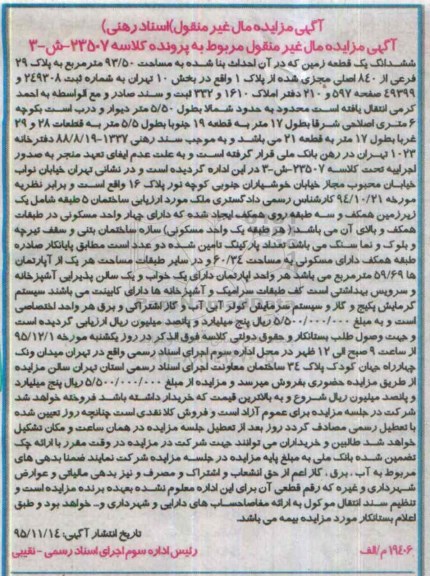 آگهی مزایده مال غیر منقول(اسناد رهنی)
آگهی مزایده مال غیر منقول مربوط به پرونده کلاسه ۲۳۵۰۷-ش-۳
ششدانگ یک قطعه زمین که در آن احداث بنا شده به مساحت ۹۳/۵۰ مترمربع به پلاک ۲۹
فرعی از ۸۴۰ اصلی مجزی شده از پلاک ۱ واقع در بخش ۱۰ تهران به شماره ثبت ۲۴۹۳۰۸ و
۴۹۳۹۹ صفحه ۵۹۷ و ۲۱۰ دفتر املاک ۱۶۱۰ و ۳۳۲ ثبت و سند صادر و مع الواسطه به احمد
کرمی انتقال یافته است محدود به حدود شمالا بطول ۵/۵۰ متر دیوار و درب است بکوچه
۶ متری اصلاحی شرقا بطول ۱۷ متر به قطعه ۱۹ جنوبا بطول ۵/۵ متر به قطعات ۲۸ و ۲۹
غربا بطول ۱۷ متر به قطعه ۲۱ می باشد و به موجب سند رهنی ۱۳۳۷-۸۸/۸/۱۹ دفترخانه
۱۰۲۳ تهران در رهن بانک ملی قرار گرفته است و به علت عدم ایفای تعهد منجر به صدور
اجراییه تحت کلاسه ۲۳۵۰۷-ش-۳ در این اداره گردیده است و در نشانی تهران خیابان نواب
خیابان محبوب مجاز خیابان خوشیاران جنوبی کوچه نور پلاک ۱۶ واقع است و برابر نظریه
مورخه ۹۴/۱۰/۲۱ کارشناس رسمی دادگستری ملک مورد ارزیابی ساختمان ۵ طبقه شامل یک
زیرزمین همکف و سه طبقه روی همکف ایجاد شده که دارای چهار واحد مسکونی در طبقات
همکف و بالای آن می باشد.(هر طبقه یک واحد مسکونی) سازه ساختمان بتنی و سقف تیرچه
و بلوک و نما سنگ می باشد تعداد پارکینگ تامین شده دو عدد است مطابق پایانکار صادره
طبقه همکف دارای مسکونی به مساحت ۶۰/۳۴ و در سایر طبقات مساحت هر یک از آپارتمان
ها ۵۹/۶۹ مترمربع می باشد هر واحد اپارتمان دارای یک خواب و یک سالن پذیرایی آشپزخانه
و سرویس بهداشتی است کف طبقات سرامیک و آشپزخانه ها دارای کابینت می باشند سیستم
گرمایش پکیج و گاز و سیستم سرمایش کولر آن آب و گاز اشتراکی و برق هر واحد اختصاصی
است و به مبلغ ۵/۵۰۰/۰۰۰/۰۰۰ ریال پنج میلیارد و پانصد میلیون ریال ارزیابی گردیده است
و جهت وصول طلب بستانکار و حقوق دولتی کلاسه فوق الذکر در روز یکشنبه مورخه ۹۵/۱۲/۱
از ساعت ۹ صبح الی ۱۲ ظهر در محل اداره سوم اجرای اسناد رسمی واقع در تهران میدان ونک
چهارراه جهان کودک پلاک ۳۴ ساختمان معاونت اجرای اسناد رسمی استان تهران سالن مزایده
از طریق مزایده حضوری بفروش میرسد و مزایده از مبلغ ۵/۵۰۰/۰۰۰/۰۰۰ ریال پنج میلیارد
و پانصد میلیون ریال شروع و به بالاترین قیمت که خریدار داشته باشد فروخته خواهد شد
شرکت در جلسه مزایده برای عموم آزاد است و فروش کلا نقدی است چنانچه روز تعیین شده
با تعطیل رسمی مصادف گردد روز بعد از تعطیل جلسه مزایده در همان ساعت و مکان تشکیل
خواهد شد طالبین و خریداران می توانند جهت شرکت در مزایده در وقت مقرر با ارائه چک
تضمین شده بانک ملی به مبلغ پایه مزایده در جلسه مزایده شرکت نمایند ضمنا بدهی های
مربوط به آب، برق ، گاز اعم از حق انشعاب و اشتراک و مصرف و نیز بدهی مالیاتی و عوارض
شهرداری و غیره که رقم قطعی آن برای این اداره معلوم نشده بعهده برنده مزایده است و
تنظیم سند انتقال موکول به ارائه مفاصاحساب های دارایی و شهرداری و... خواهد بود و طبق
اعلام بستانکار مورد مزایده بیمه می باشد.
تاریخ انتشار آگهی: ۹۵/۱۱/۱۴
۱۹۴۰۶ م/الف رئیس اداره سوم اجرای اسناد رسمی - نقیبی